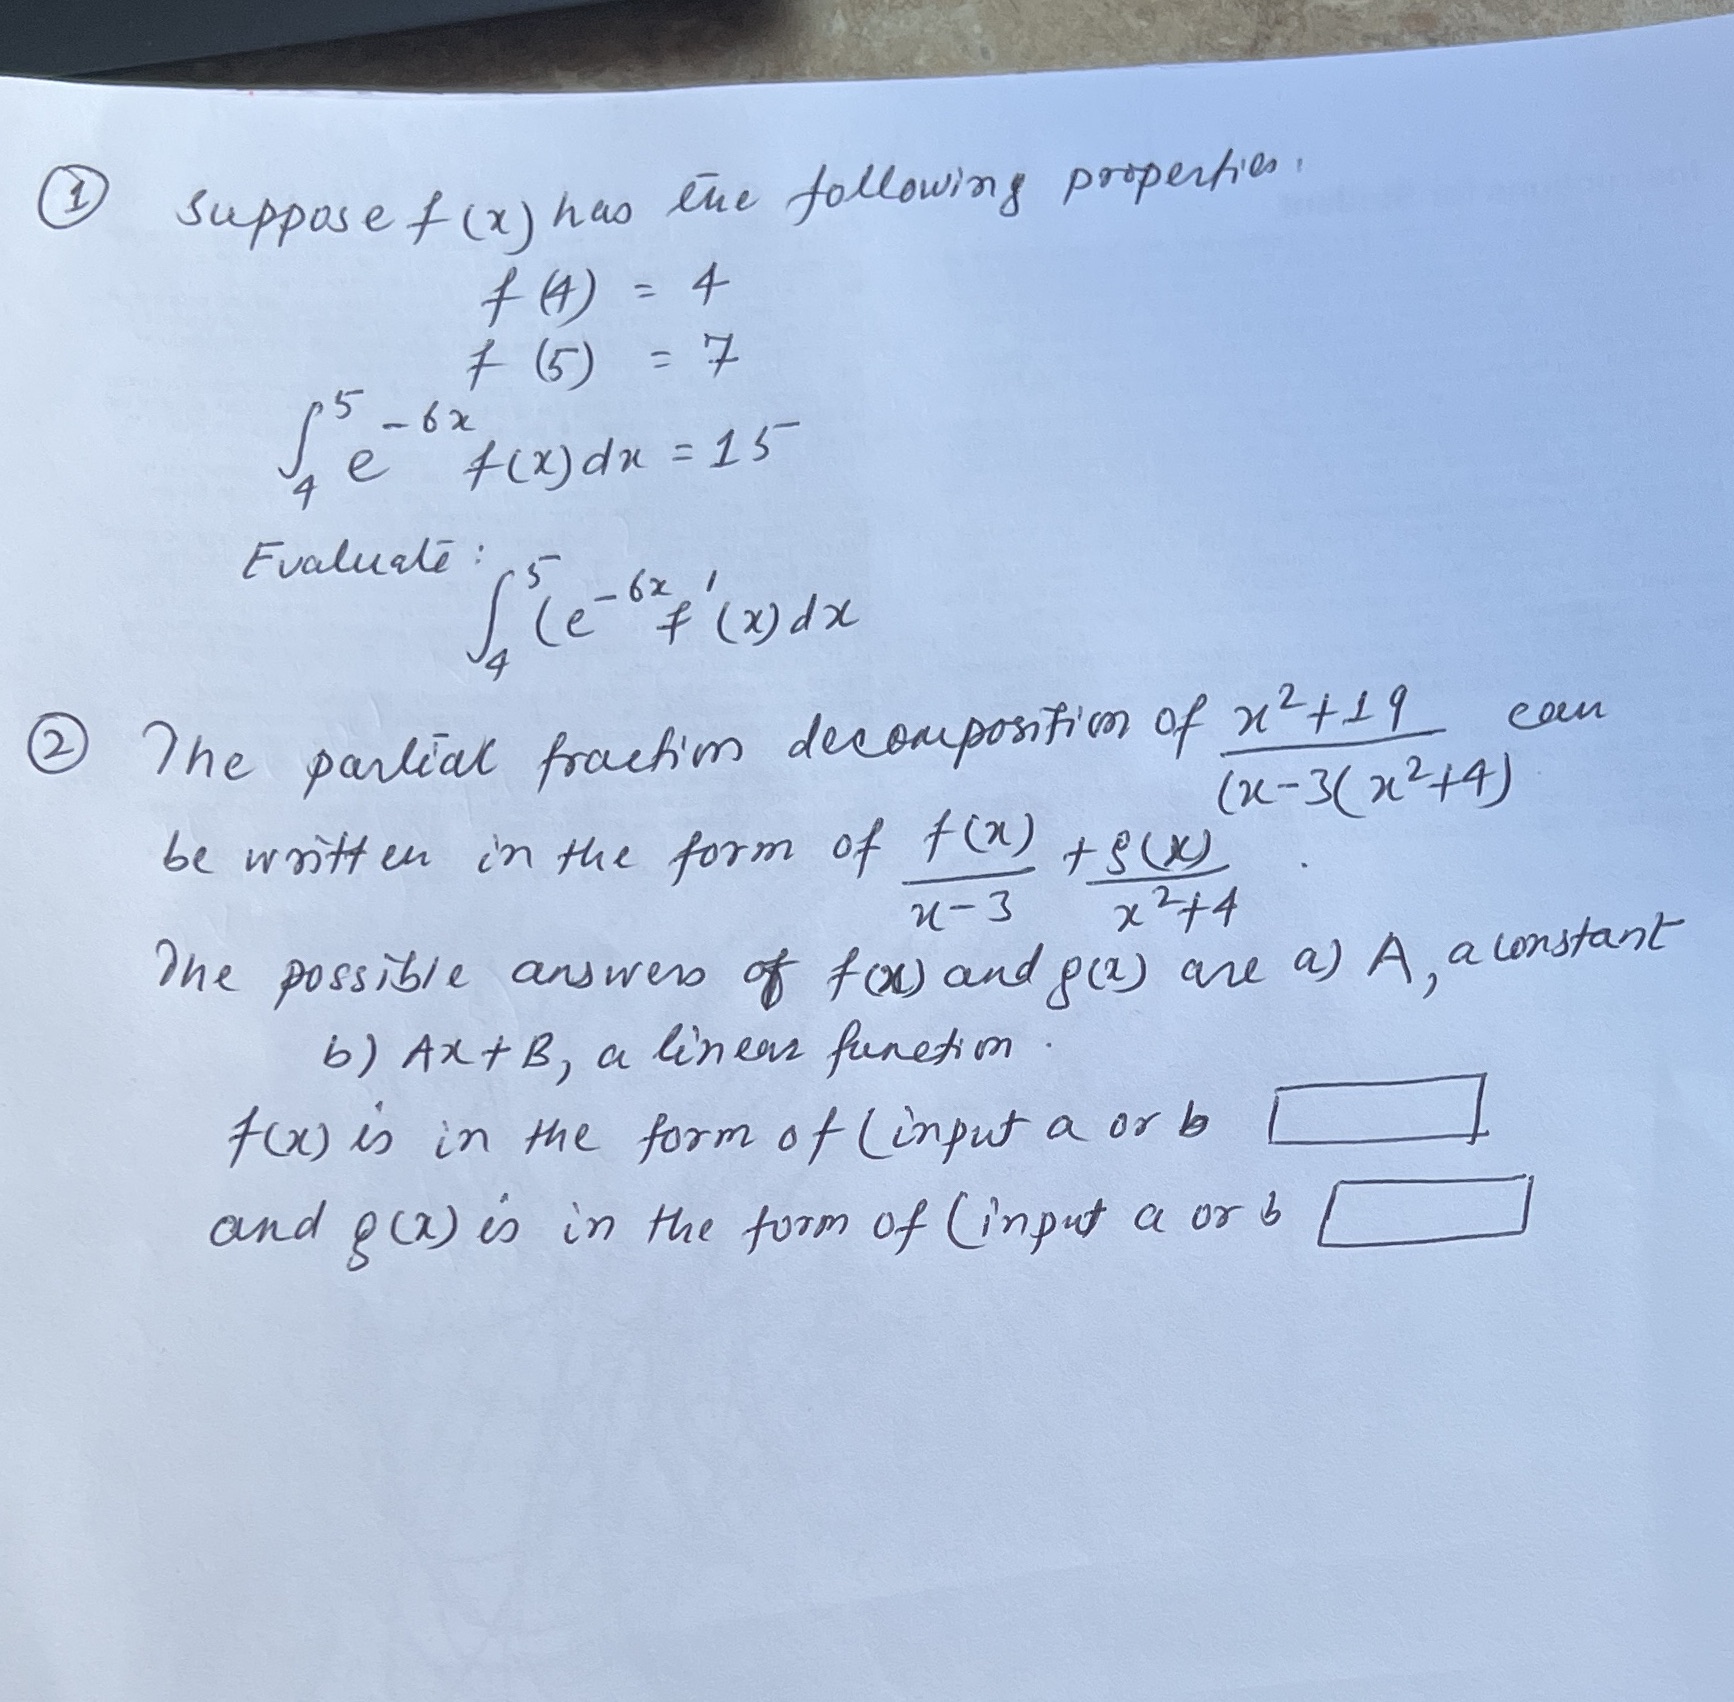 ① Suppose f(x) has the following properties.
f(4) = 4
f(5) = 7
∫₄⁵ e^{-6x} f(x) dx = 15
Evaluate:
∫₄⁵ (e^{-6x} f'(x) dx
② The partial fraction decomposition of \frac{x²+19}{(x-3(x²+4)} can
be written in the form of \frac{f(x)}{x-3} + \frac{g(x)}{x²+4} .
The possible answers of f(x) and g(x) are a) A, a constant
b) Ax+B, a linear function.
f(x) is in the form of (input a or b
and g(x) is in the form of (input a or b